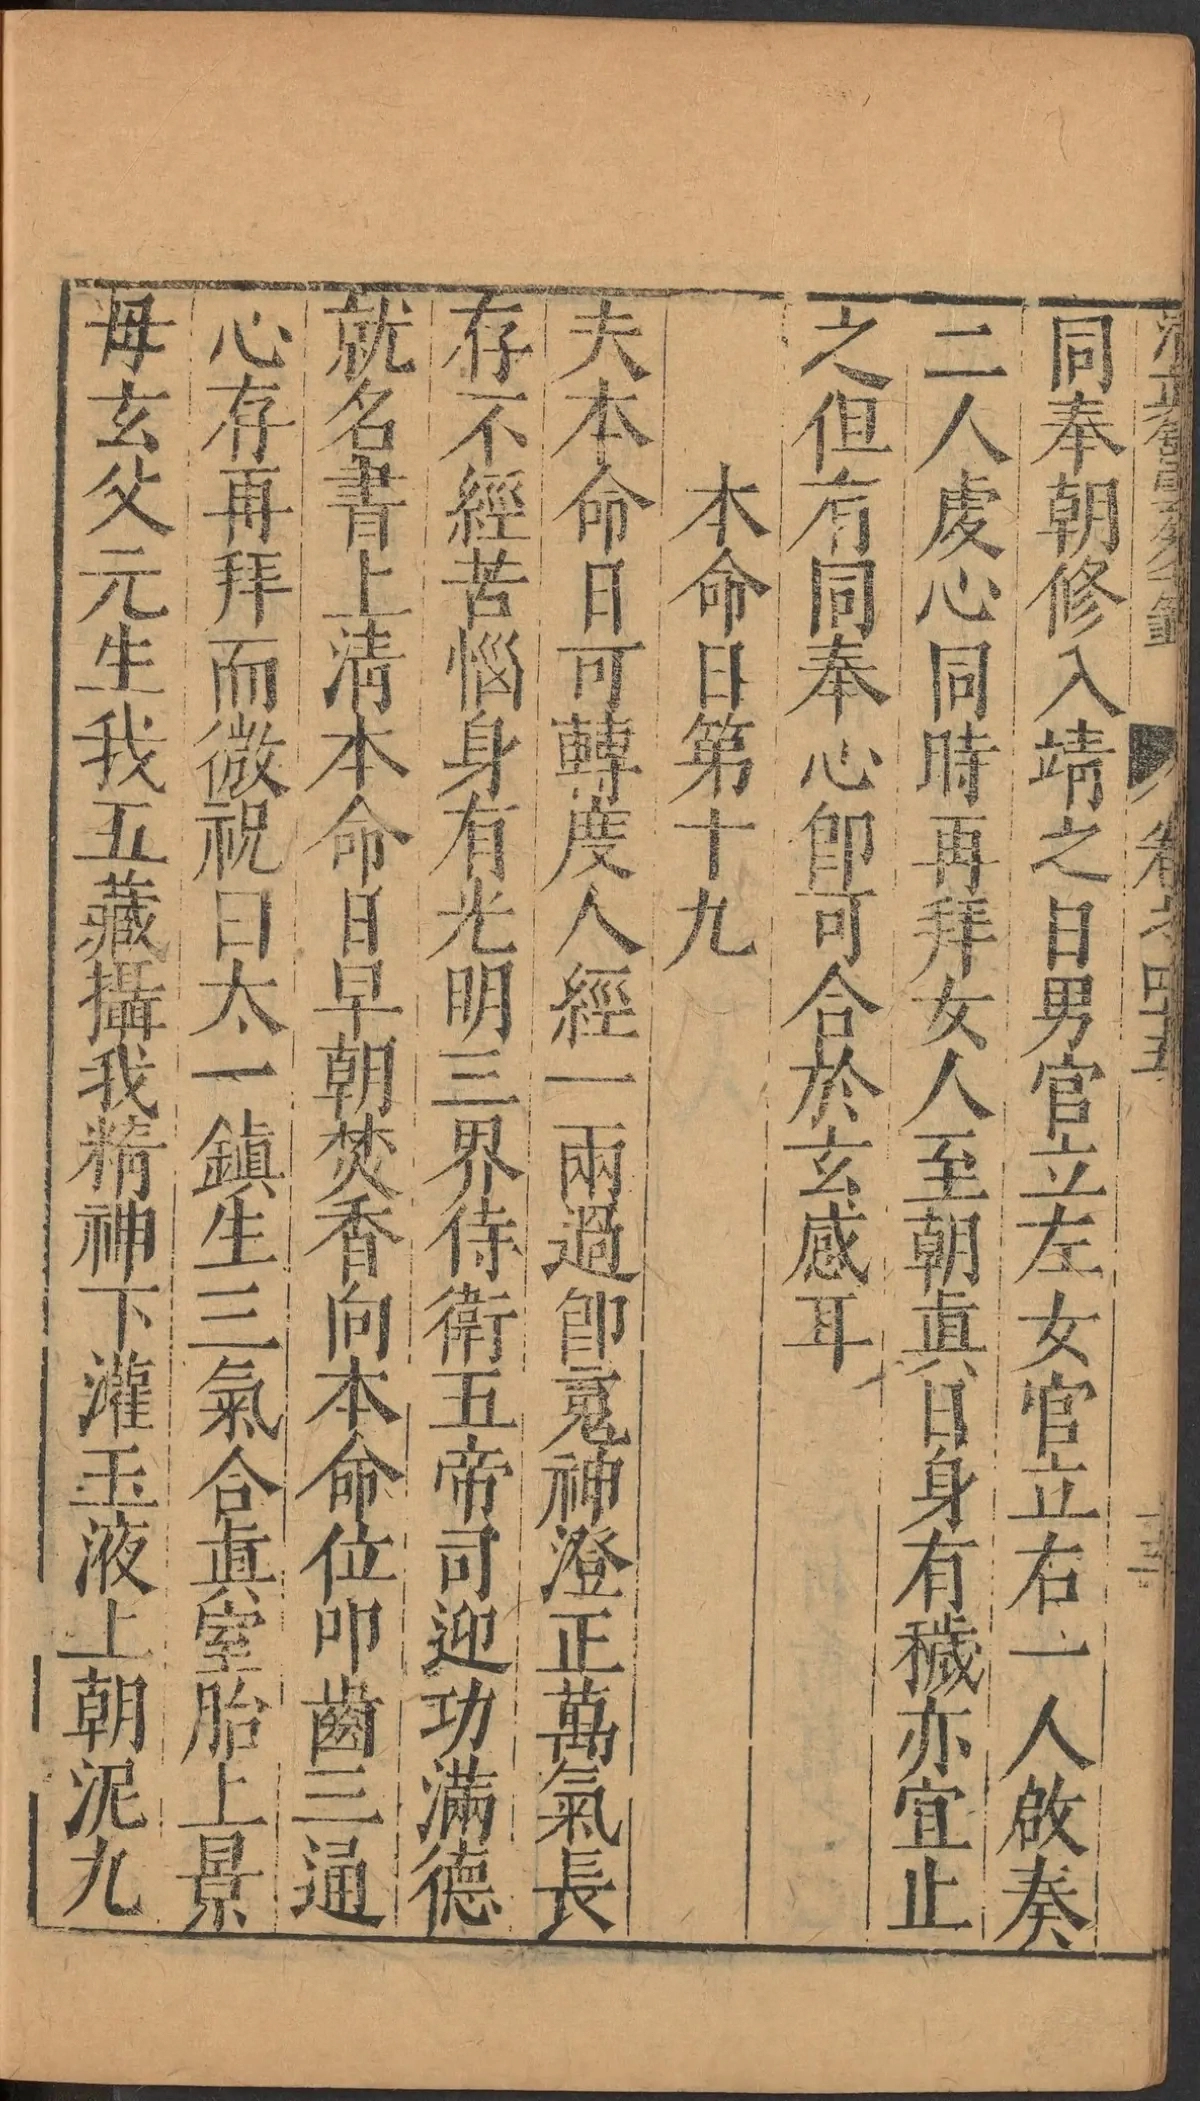 卷之四五
同奉朝修入靖之日男官立左女官立右一人啟奏
二人處心同時再拜女人至朝眞日身有穢亦宜止
之但有同奉心卽可合於玄感耳
本命日第十九
夫本命日可轉度人經一兩過卽䰟神澄正萬氣長
存不經苦惱身有光明三界侍衛五帝司迎功滿德
就名書上清本命日早朝焚香向本命位叩齒三通
心存再拜而微祝曰太一鎮生三氣合眞室胎上景
母玄父元生我五藏攝我精神下灌玉液上朝泥九